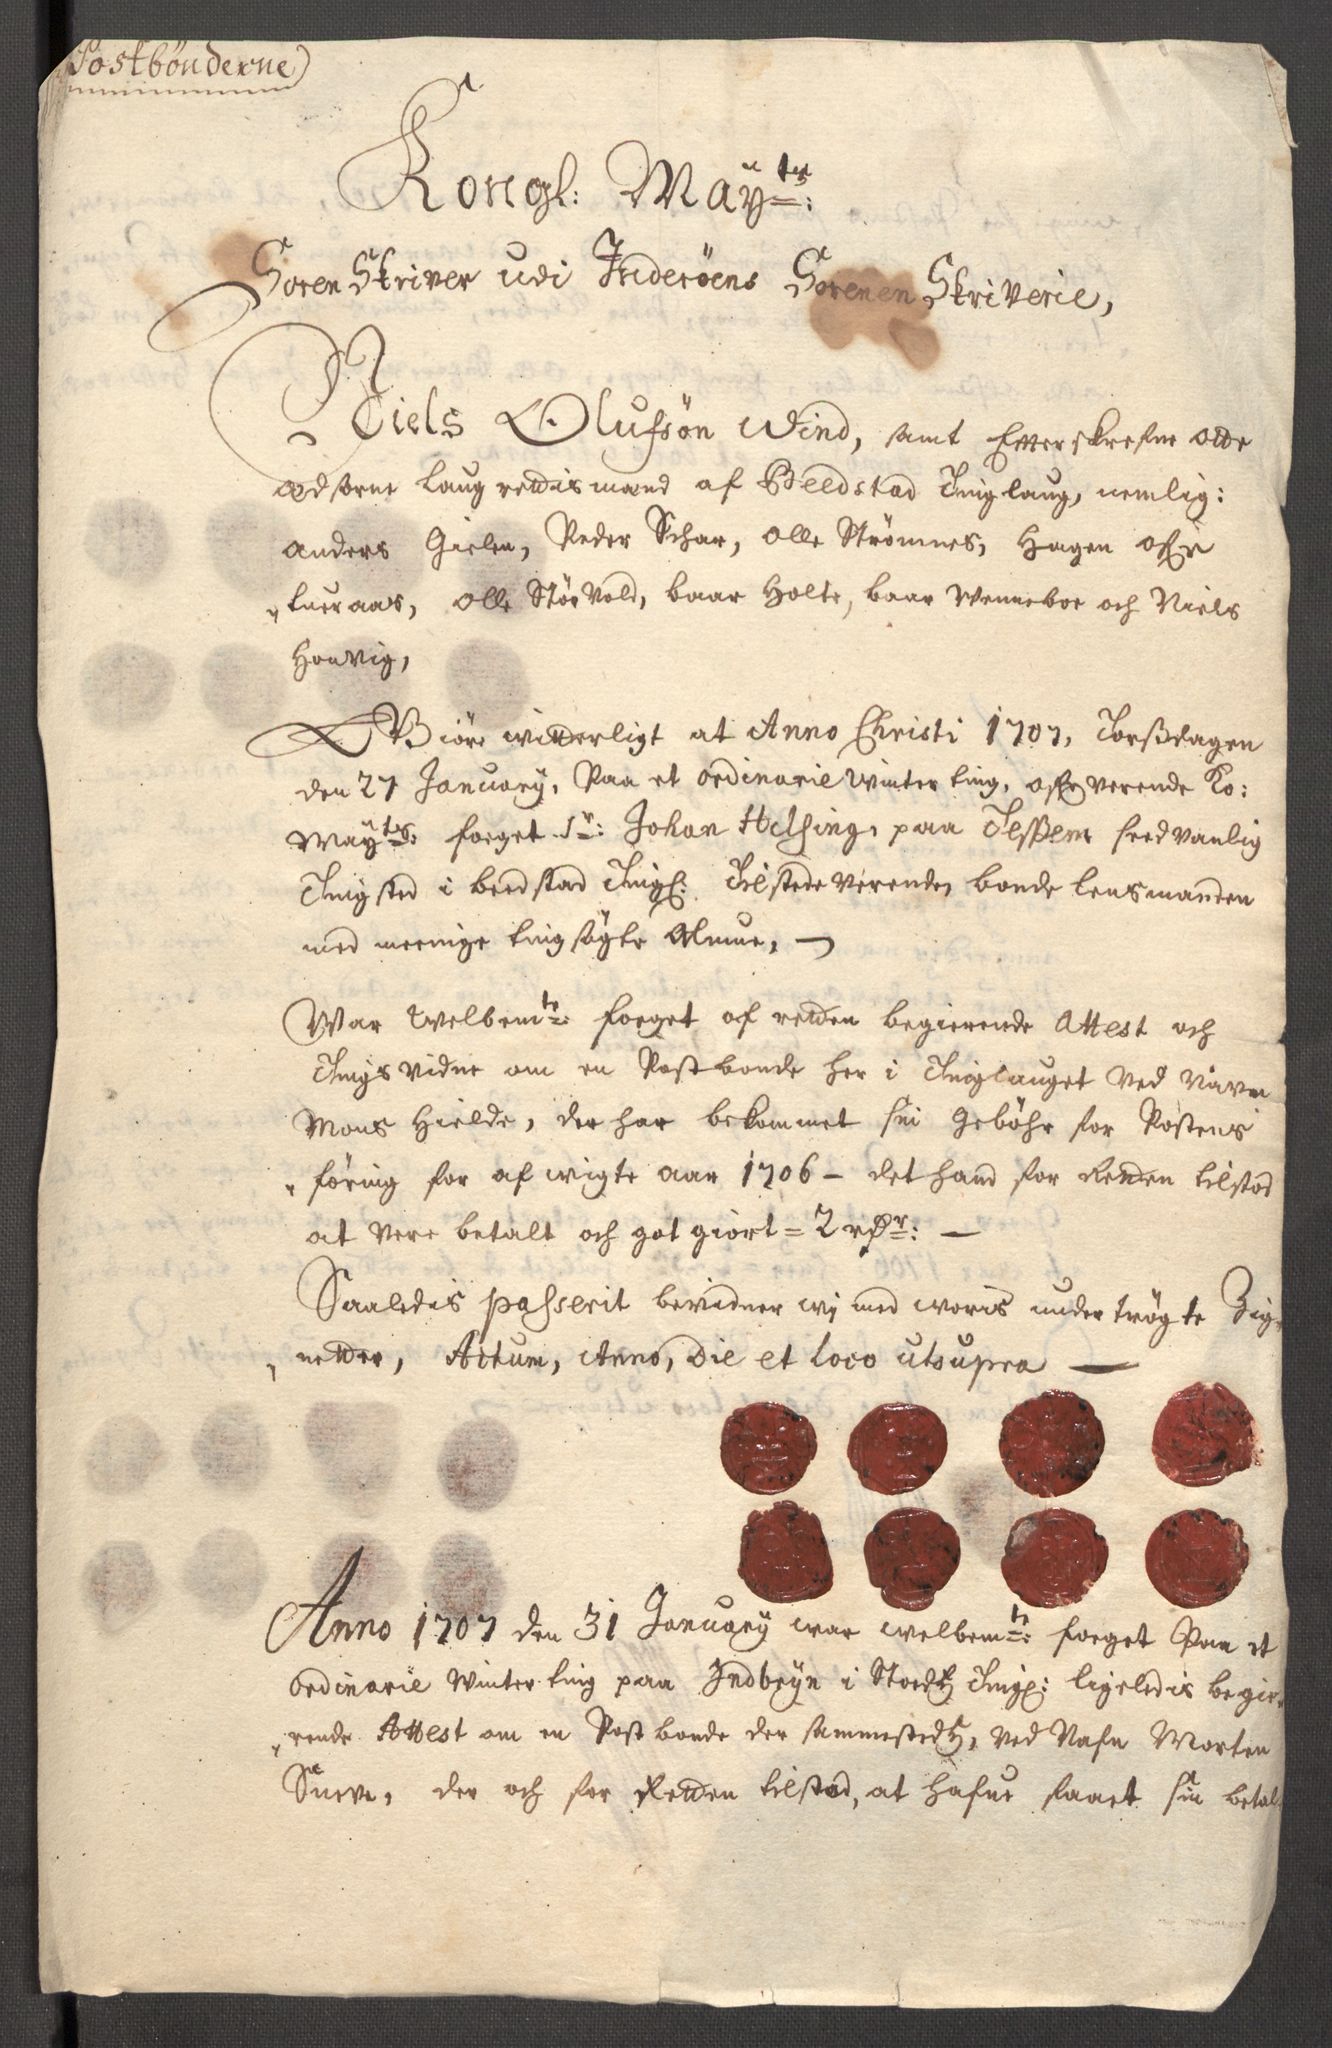 Postbønderne)
Kongl: Maÿtes:
Soren Skriver udi Inderöens Sorenen Skriverie,
Niels Olufsön Wind, samt Efterskrefne otte
Edsorne laug rettis mænd af Beedstad Tinglaug, nemlig:
Anders Gielen, Peder Schar, Olle Strömnes, Hagen
Olle Störvold, baar Holte, baar Wenneboe och Niels
Honvig,
Giöre witterligt at Anno Christi 1707, Torßdagen
den 27 January, Paa et ordinarie Winter ting, ofververende Ko:
Maÿts: foeget Sr: Johan Helsing, paa Jelßem sædvanlig
Tingsted i beedstad Tingl: Tilstede verende, bonde lensmanden
med meenige ting søgte Almue,
War welbemte: foeget af retten begierende Attest och
Tings vidne om en Postbonde her i Tinglauget ved Navn
Mons Hielde, der har bekommet sin Gebøhr for Postens
föring for afwigte aar 1706 – det hand for Retten tilstod
at vere betalt och got giort = 2 rdr: —
Saaledis passerit bevidner wj med woris under trögte Zig-
netter, Actum, Anno, Die et loco utsupra —
Anno 1707 den 31 January war welbemte: foeget Paa et
ordinarie Winter ting paa Indbrÿn i Stodtz Tingl: ligeledis begie-
rende Attest om en Postbonde der sammestedtz, ved Nafn Morten
Sneve, der och for Retten tilstod, at hafue faaet sin betal-